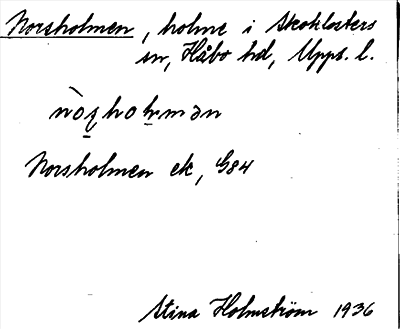 Norsholmen, holme i Skoklosters
sn, Håbo hd, Upps. l.
Norsholmen ek, G84
Stina Holmström 1936